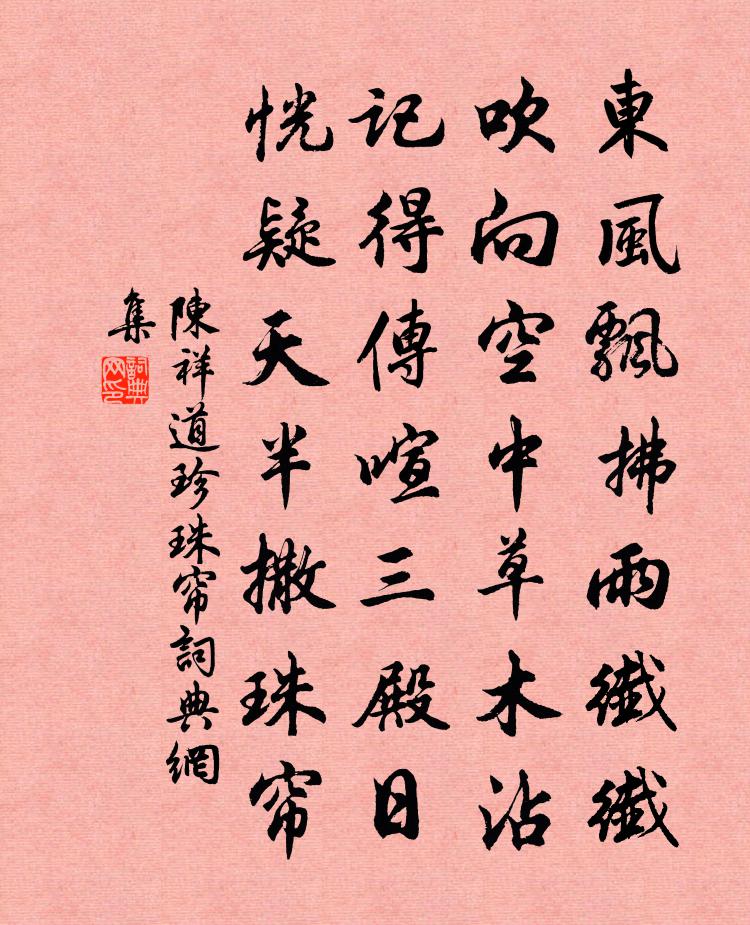 東風飄拂雨纖纖
吹向空中草木沾
記得傳喧三殿日
恍疑天半撒珠帘
陳祥道珍珠帘詞典網
集
詞典
网印